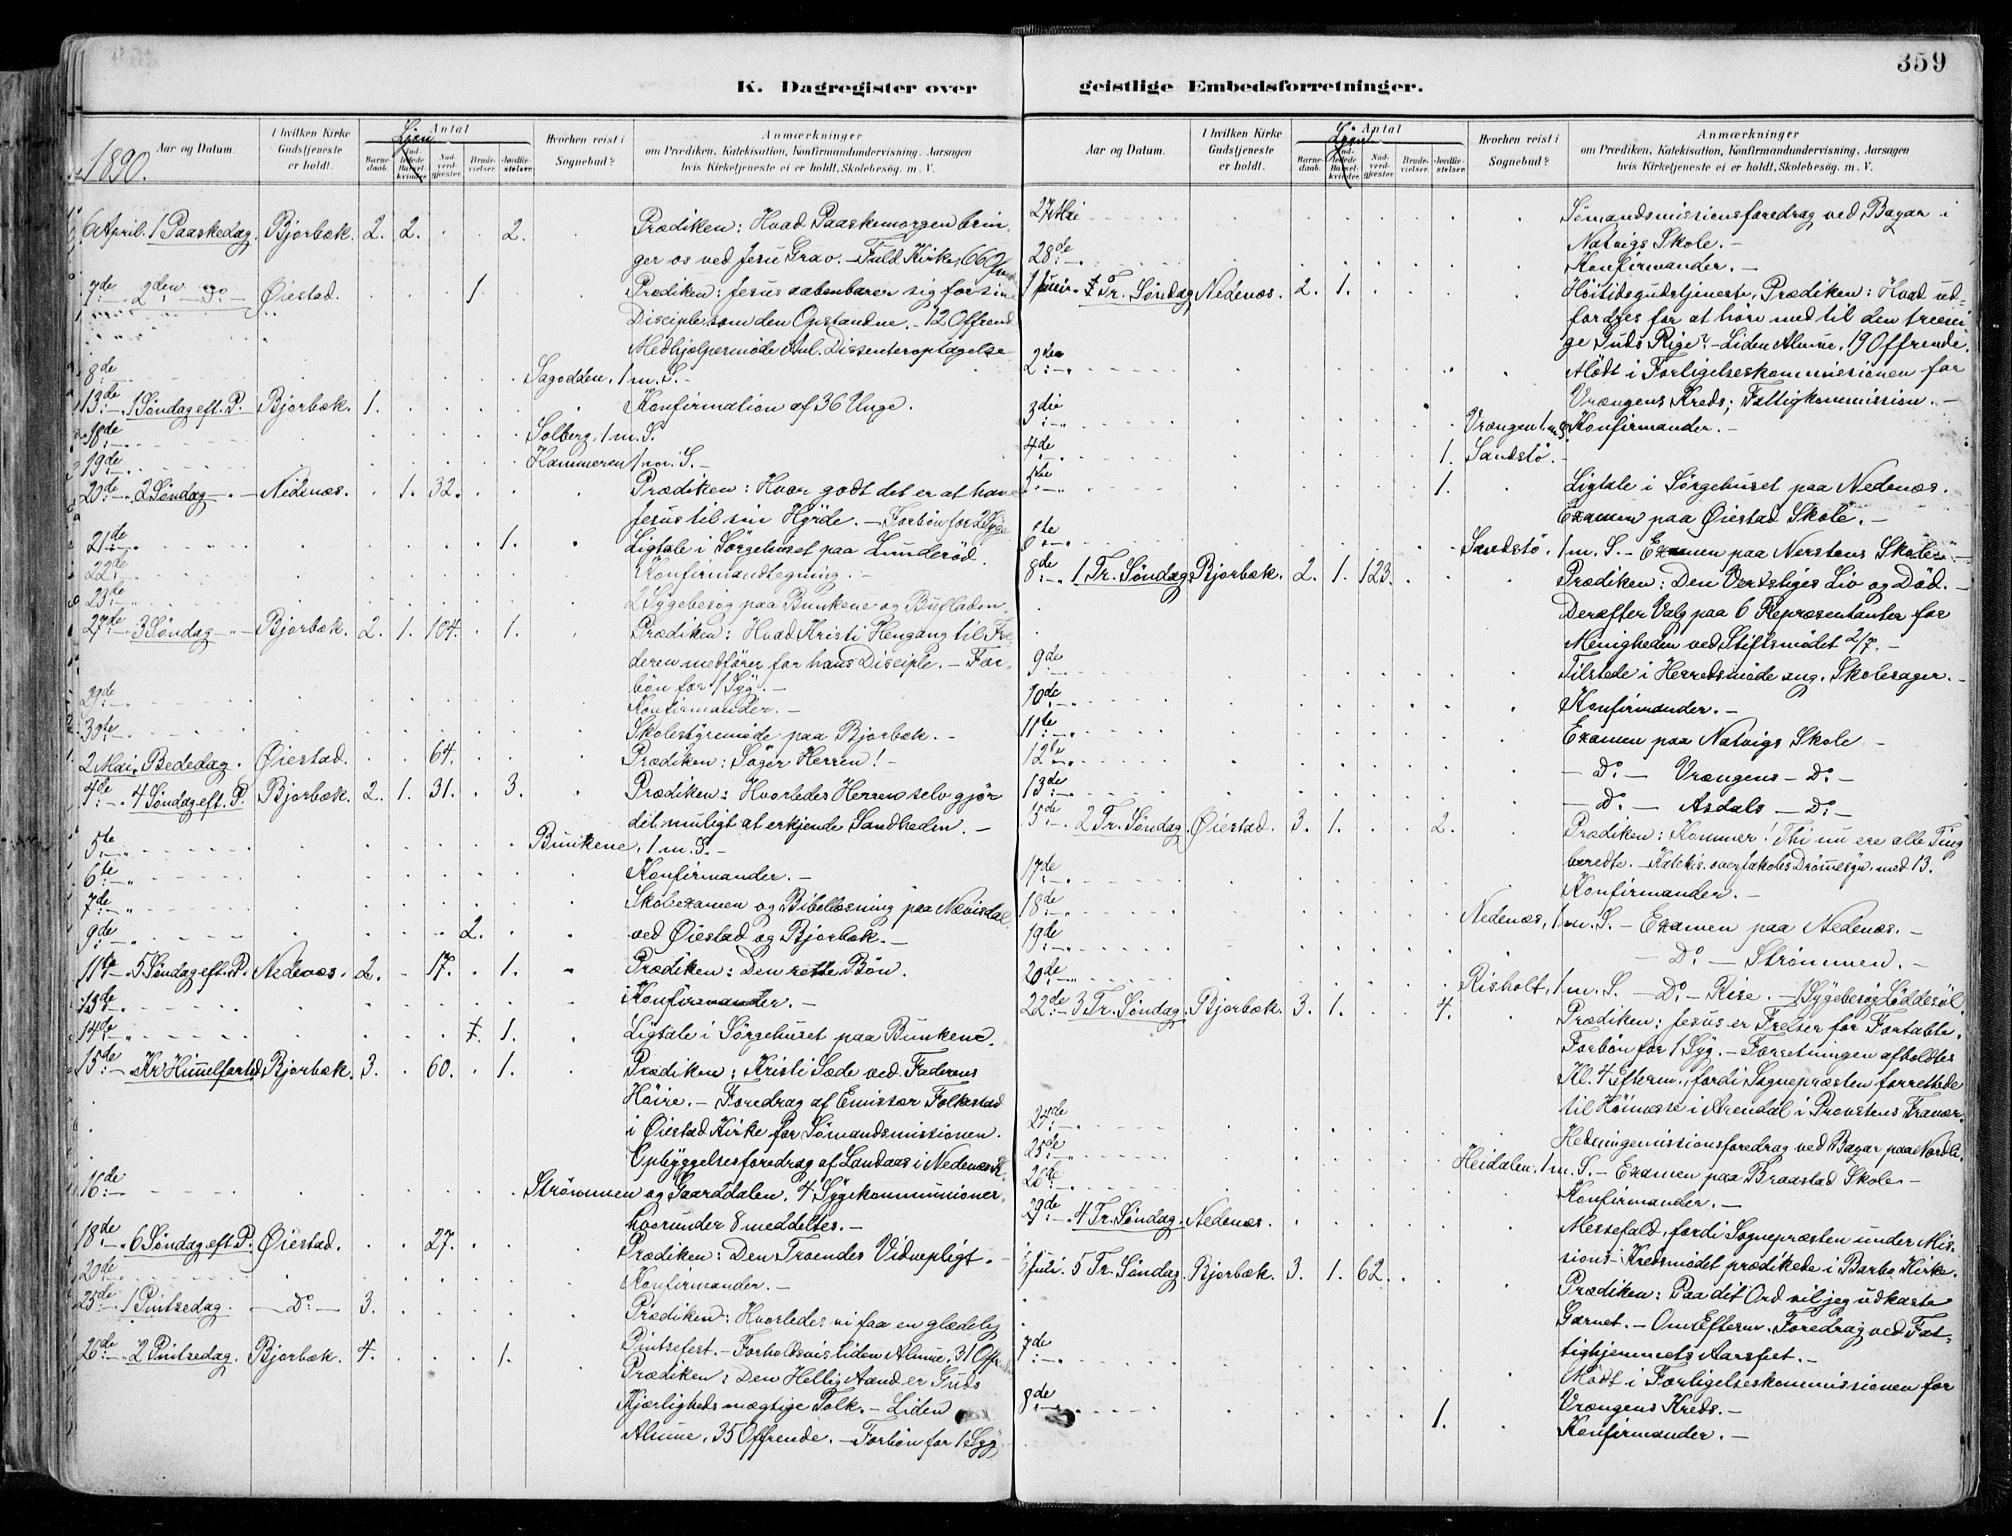 359
K. Dagregister over
geistlige Embedsforretninger.
1890.
Aar og Datum.
I hvilken Kirke Gudstjeneste er holdt.
Antal
Barnedaab.
Indledede Barselkvinder.
Nadverdgjester
Brudevielser.
Jordfæstelser.
Hvorhen reist i Sognebud?
Anmærkninger
om Prædiken, Katekisation, Konfirmandundervisning, Aarsagen
hvis Kirketjeneste ei er holdt, Skolebesøg m. V.
6 April. 1 Paaskedag. Bjorbæk. 2. 2. 2. Prædiken: Hvad Paaskemorgen brin-
ger os ved Jesu Grav. – Fuld Kirke, 66 Off
7de 2den Do Øiestad. 1 Prædiken: Jesus aabenbarer sig for sine
Disciple som den Opstandne. – 12 Offrend
Medhjælpermøde Anl. Dissenteroptagelse
8de Sagodden, 1 m. S. –
13de 1 Søndag eft. P. Bjorbæk. 1. Konfirmation af 36 Unge.
18de Solberg, 1 m. S.
19de Kammeren 1 m. S. –
20de 2 Søndag Nedenæs. 1. 32. Prædiken: Hvor godt det er at have
Jesus til sin Hyrde. – Forbøn for 2 Syge
21de 1. Ligtale i Sørgehuset paa Lunderød.
22de Konfirmandlegning. –
23de 2 Sygebesøg paa Bunkene og Bufladen.
27de 3 Søndag Bjorbæk. 2. 1. 104. 1. Prædiken: Hvad Kristi Hengang til Fa-
deren medfører for hans Disciple. – For-
bøn for 1 Syg. –
29de Konfirmander. –
30te Skolestyremøde paa Bjorbæk. –
2 Mai. Bededag. Øiestad. 64. Prædiken: Søger Herren! –
4de 4 Søndag eft. P. Bjorbæk. 2. 1. 31. 3. Prædiken: Hvorledes Herren selv gjør
det muligt at erkjende Sandheden. –
5te Bunkene, 1 m. S. –
6te Konfirmander. –
7de Skoleexamen og Bibellæsning paa Nævisdal
9de 2. ved Øiestad og Bjorbæk. –
11te 5 Søndag eft. P. Nedenæs. 2. 17. 1. Prædiken: Den rette Bøn.
13de Konfirmander. –
14de 1. Ligtale i Sørgehuset paa Bunkene.
15de Kr Himmelfartsd Bjorbæk. 3. 60. 1. Prædiken: Kristi Sæde ved Faderens
Høire. – Foredrag af Emissær Folkestad
i Øiestad Kirke for Sømandsmissionen.
Opbyggelsesforedrag af Landaas i Nedenæs K.
16de Strømmen og Gaarddalen, 4 Sygekommunioner,
hvorunder 8 meddeltes. –
18de 6 Søndag eft. P. Øiestad. 27. Prædiken: Den Troendes Vidnepligt. –
20de Konfirmander. –
25de 1 Pintsedag. Do 3. Prædiken: Hvorledes vi faa en glædelig
Pintsefest. – Forholdsvis liden Almue, 31 Offr
26de 2 Pintsedag. Bjorbæk. 4. 1. Prædiken: Den Hellig Aand er Guds
Kjærligheds mægtige Tolk. – Liden
Almue, 35 Offrende. – Forbøn for 1 Syg
Aar og Datum.
I hvilken Kirke Gudstjeneste er holdt.
Antal
Barnedaab.
Indledede Barselkvinder.
Nadverdgjester
Brudevielser.
Jordfæstelser.
Hvorhen reist i Sognebud?
Anmærkninger
om Prædiken, Katekisation, Konfirmandundervisning, Aarsagen
hvis Kirketjeneste ei er holdt, Skolebesøg m. V.
27 Mai Sømandsmissionsforedrag ved Bazar i
Natvigs Skole. –
28de Konfirmander. –
1 Juni. Tr. Søndag Nedenæs. 2. 1. Høitidsgudstjeneste, Prædiken: Hvad ud-
fordres for at høre med til den treeni-
ge Guds Rige? – Liden Almue, 19 Offrende.
2den Mødt i Forligelseskommissionen for
Vrængens Kreds; Fattigkommission. –
3die Vrængen 1 m. S. Konfirmander. –
4de 1. Sandstø. –
5te 1. Ligtale i Sørgehuset paa Nedenæs.
Examen paa Øiestad Skole. –
6te Sandstø. 1 m. S. – Examen paa Nerstens Skole –
8de 1 Tr. Søndag Bjorbæk. 2. 1. 123. Prædiken: Den Verdsliges Liv og Død. –
Derefter Valg paa 6 Repræsentanter for
Menigheden ved Stiftsmødet 2/7. –
9de Tilstede i Herredsmøde ang. Skolesager. –
10de Konfirmander. –
11te Examen paa Natvigs Skole –
12te – Do – Vrængens – Do –
13de – Do – Asdals – Do –
15de 2 Tr. Søndag. Øiestad. 3. 1. 2. Prædiken: Kommer! Thi nu ere alle Ting
beredte. – Katekis. over Jakobs Drømmesyn, med 13.
17de Konfirmander. –
18de Nedenæs, 1 m. S. – Examen paa Nedenæs. –
19de – Do – Strømmen. –
20de Risholt, 1 m. S. – Do – Rise. – 1 Sygebesøg Løddesøl.
22de 3 Tr. Søndag. Bjorbæk. 3. 1. 4. Prædiken: Jesus er Frelser for Fortabte.
Forbøn for 1 Syg. – Forretningen afholdtes
Kl. 4 Efterm., fordi Sognepræsten forrettede
til Høimesse i Arendal i Provstens Fravær.
24de Hedningemissionsforedrag ved Bazar paa Nordli.
25de Heidalen, 1 m. S. – Examen paa Braastad Skole. –
26de Konfirmander. –
29de 4 Tr. Søndag. Nedenæs. Messefald, fordi Sognepræsten under Mis-
sions-Kredsmødet prædikede i Barbo Kirke.
6 Juli. 5 Tr. Søndag. Bjorbæk. 3. 1. 62. Prædiken: Paa dit Ord vil jeg udkaste
Garnet. – Om Efterm. Foredrag ved Fat-
tighjemmets Aarsfest. –
7de Mødt i Forligelseskommissionen for
Vrængens Kreds. –
8de 1. Konfirmander. –